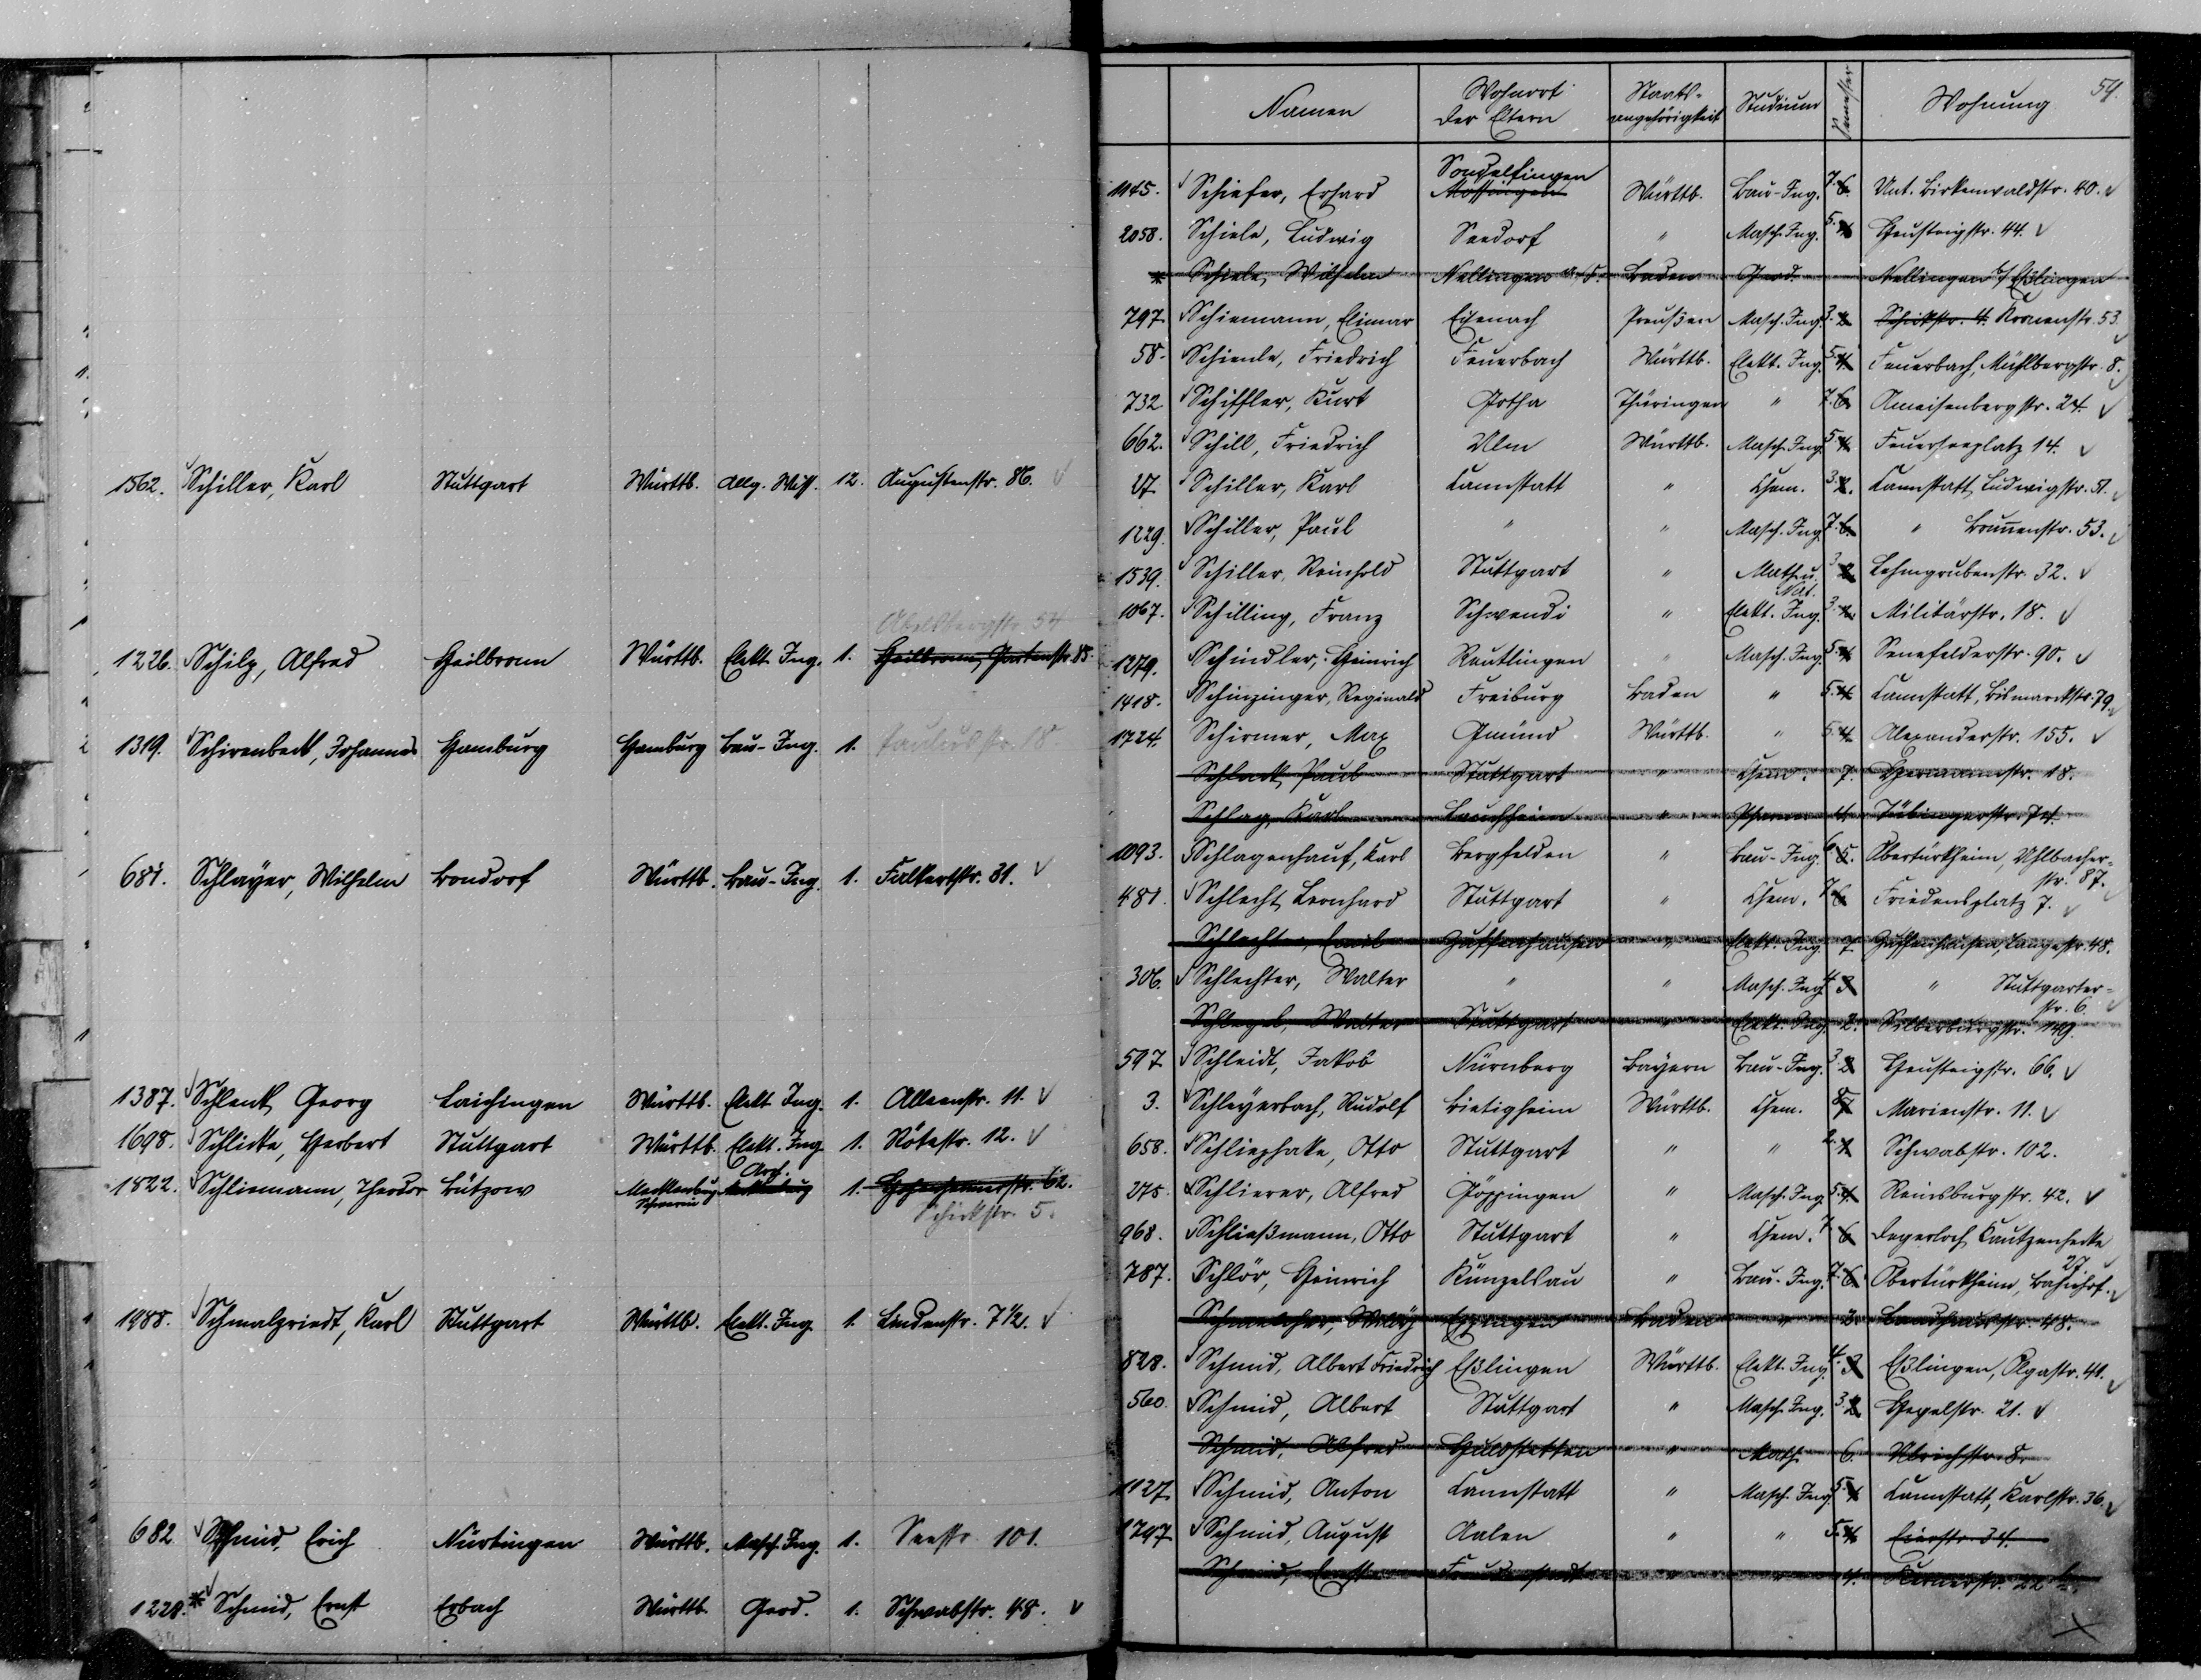 1562. Schiller, Karl Stuttgart Württb. Allg. Wiss. 12. Augustenstr. 86.
Abelsbergstr. 54
1226. Schilz, Alfred Heilbronn Württb. Elekt. Ing. 1. Heilbronn, Gartenstr. 85.
1319. Schirenbeck, Johannes Hamburg Hamburg Bau-Ing. 1. Paulusstr. 18
681. Schlayer, Wilhelm Bondorf Württb. Bau-Ing. 1. Falkertstr. 31.
1387. Schlenk, Georg Laichingen Württb. Elekt. Ing. 1. Alleenstr. 11.
1698. Schlicke, Herbert Stuttgart Württb. Elekt. Ing. 1. Rötestr. 12.
1822. Schliemann, Theodor Bützow Mecklenburg Schwerin Arch. 1. Hohenheimerstr. 62.
Schickstr. 5.
1988. Schmalzriedt, Karl Stuttgart Württb. Elekt. Ing. 1. Lindenstr. 7 1/2.
682 Schmid, Erich Nürtingen Württb. Masch. Ing. 1. Seestr. 101.
1228. * Schmid, Ernst Erbach Württb. Geod. 1. Schwabstr. 48.
59.
Namen Wohnort der Eltern Staats-angehörigkeit Studium Semester Wohnung
Sondelfingen
1145. Schiefer, Erhard Württb. Bau-Ing. 7. 6. Unt. Birkenwaldstr. 40.
2058. Schiele, Ludwig Seedorf " Masch. Ing. 5. 4. Heusteigstr. 44.
* Schiele, Wilhelm Nellingen a/F. Baden Geod. Nellingen b/ Eßlingen
797. Schiemann, Elimar Eisenach Preußen Masch. Ing. 3. 2. Schickstr. 4. Kronenstr. 53.
58. Schienle, Friedrich Feuerbach Württb. Elekt. Ing. 5. 4. Feuerbach, Mühlbergstr. 8.
732. Schiffler, Kurt Gotha Thüringen " 7. 6. Ameisenbergstr. 24.
662. Schill, Friedrich Ulm Württb. Masch. Ing. 5. 4. Feuerseeplatz 14.
27. Schiller, Karl Cannstatt " Chem. 3. 2. Cannstatt, Ludwigstr. 51.
1229. Schiller, Paul " " Masch. Ing. 7. 6. " Brunnenstr. 53.
1539. Schiller, Reinhold Stuttgart " Math. u. Nat. 3. 2. Lehmgrubenstr. 32.
1067. Schilling, Franz Schwendi " Elekt. Ing. 3. 2. Militärstr. 18.
1279. Schindler, Heinrich Reutlingen " Masch. Ing. 5. 4. Senefelderstr. 90.
1418. Schinzinger, Reginald Freiburg Baden " 5. 4. Cannstatt, Bismarckstr. 79.
1724. Schirmer, Max Gmünd Württb. " 5. 4. Alexanderstr. 155.
Schlack, Paul Stuttgart " Chem. 7. Hermannstr. 18.
Schlag, Karl Lauchheim " Pharm. 4. Tübingerstr. 74.
1093. Schlagenhauf, Karl Bergfelden " Bau-Ing. 6. 5. Obertürkheim, Uhlbacher-
str. 87.
481. Schlecht, Leonhard Stuttgart " Chem. 7. 6. Friedensplatz 7.
Schlechter, Emil Zuffenhausen " Elekt. Ing. 7. Zuffenhausen, Langestr. 48.
306. Schlechter, Walter " " Masch. Ing. 4. 3. " Stuttgarter-
str. 6.
Schlegel, Walter Stuttgart " Elekt. Ing. 2. Silberburgstr. 149.
597 Schleidt, Jakob Nürnberg Bayern Bau-Ing. 3. 2. Heusteigstr. 66.
3. Schleyerbach, Rudolf Bietigheim Württb. Chem. 8. 7. Marienstr. 11.
658. Schliephake, Otto Stuttgart " " 2. 1. Schwabstr. 102.
275. Schlierer, Alfred Göppingen " Masch. Ing. 5. 4. Reinsburgstr. 42.
968. Schließmann, Otto Stuttgart " Chem. 7. 6. Degerloch, Kautzenhecke
27.
787. Schlör, Heinrich Künzelsau " Bau-Ing. 7. 6. Obertürkheim, Bahnhof.
Schmelcher, Willy Eppingen Baden " 2. Landhausstr. 48.
828. Schmid, Albert Friedrich Eßlingen Württb. Elekt. Ing. 4. 3. Eßlingen, Olgastr. 41.
560. Schmid, Albert Stuttgart " Masch. Ing. 3. 2. Hegelstr. 21.
Schmid, Alfred Huldstetten " Math. 6. Ulrichstr. 8.
1127. Schmid, Anton Cannstatt " Masch. Ing. 5. 4. Cannstatt, Karlstr. 36.
1797 Schmid, August Aalen " " 5. 4.
Schmid, Freudenstadt " " 4. Kernerstr. 22